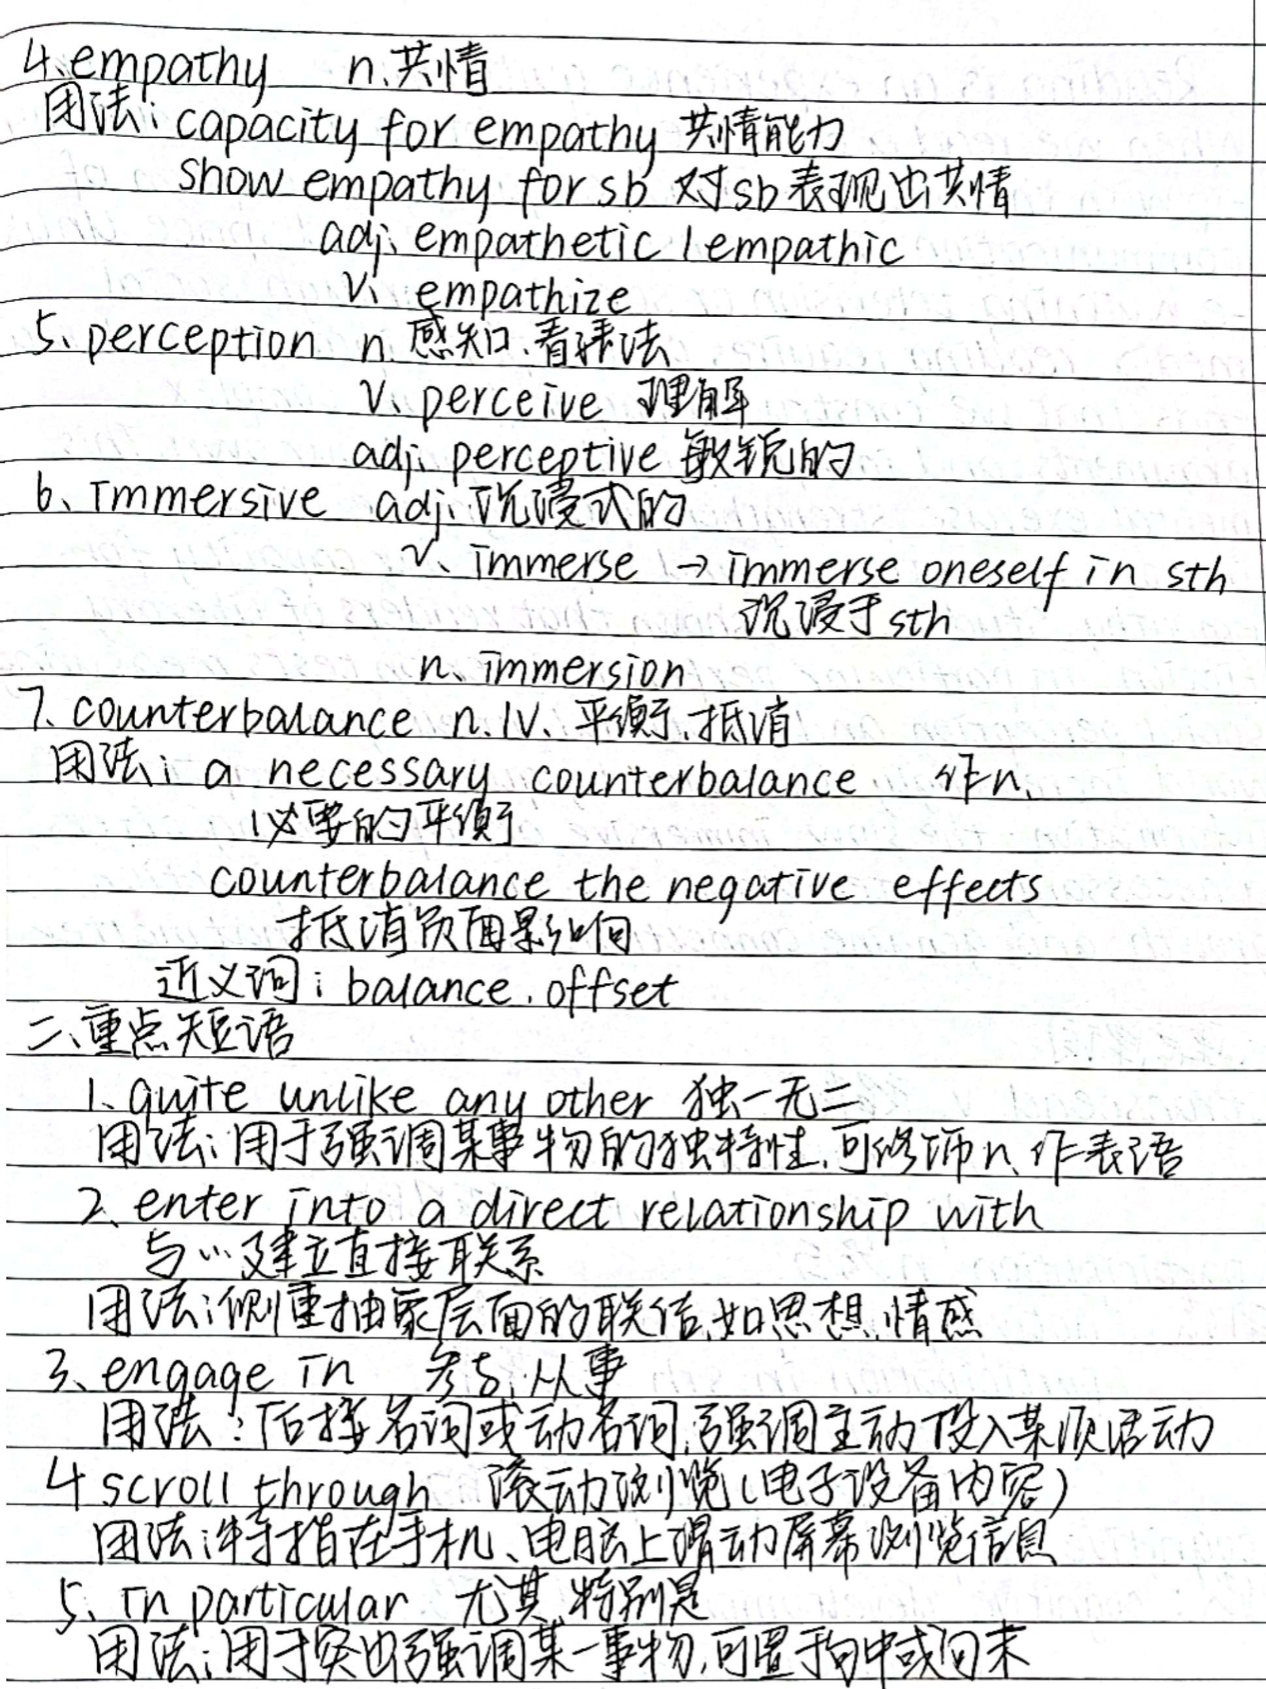 4、empathy n.共情
用法：capacity for empathy 共情能力
show empathy for sb 对sb表现出共情
adj. empathetic / empathic
v. empathize
5、perception n.感知、看待法
v. perceive 理解
adj. perceptive 敏锐的
6、immersive adj.沉浸式的
v. immerse → immerse oneself in sth
沉浸于sth
n. immersion
7、counterbalance n./v. 平衡、抵消
用法：a necessary counterbalance 作n.
必要的平衡
counterbalance the negative effects
抵消负面影响
近义词：balance、offset
二、重点短语
1、quite unlike any other 独一无二
用法：用于强调某事物的独特性，可修饰n、作表语
2、enter into a direct relationship with
与…建立直接联系
用法：侧重抽象层面的联结，如思想、情感
3、engage in 参与、从事
用法：后接名词或动名词，强调主动投入某项活动
4 scroll through 滚动浏览（电子设备内容）
用法：特指在手机、电脑上滑动屏幕浏览信息
5、in particular 尤其、特别是
用法：用于突出强调某一事物，可置于句中或句末